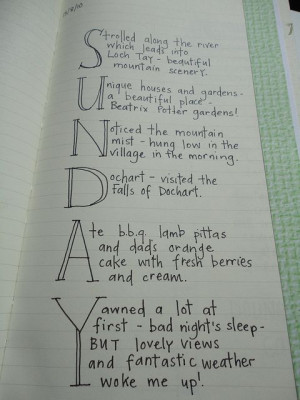 Strolled along the river
which leads into
Loch Tay - beautiful
mountain scenery.
Unique houses and gardens -
a beautiful place -
Beatrix Potter gardens!
Noticed the mountain
mist - hung low in the
village in the morning.
Dochart - visited the
falls of Dochart.
Ate b.b.q. lamb pittas
and dads orange
cake with fresh berries
and cream.
Yawned a lot at
first - bad night's sleep -
BUT lovely views
and fantastic weather
woke me up!